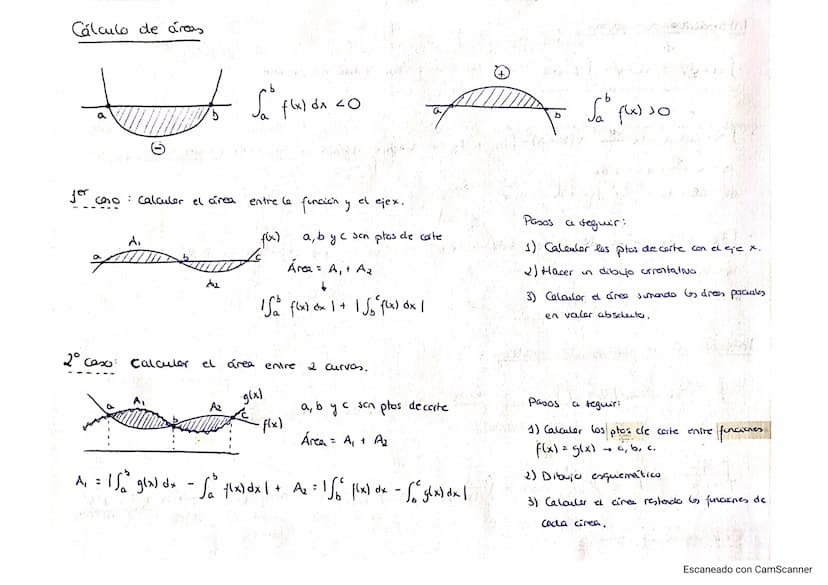 Cálculo de áreas
∫ₐᵇ f(x) dx < 0
a
b
⊖
⊕
a
b
∫ₐᵇ f(x) > 0
1er caso : Calcular el área entre la función y el eje x.
A₁
a
b
c
A₂
f(x)
a, b y c son ptos de corte
Área = A₁ + A₂
↓
|∫ₐᵇ f(x) dx | + |∫_b^c f(x) dx |
Pasos a seguir:
1) Calcular los ptos de corte con el eje x.
2) Hacer un dibujo orientativo
3) Calcular el área sumando las áreas parciales
en valor absoluto.
2º caso: Calcular el área entre 2 curvas.
a
A₁
b
A₂
c
g(x)
f(x)
a, b y c son ptos de corte
Área = A₁ + A₂
A₁ = |∫ₐᵇ g(x) dx - ∫ₐᵇ f(x) dx | + A₂ = |∫_b^c f(x) dx - ∫_b^c g(x) dx |
Pasos a seguir:
1) Calcular los ptos de corte entre funciones
f(x) = g(x) → a, b, c.
2) Dibujo esquemático
3) Calcular el área restando las funciones de
cada área.
Escaneado con CamScanner